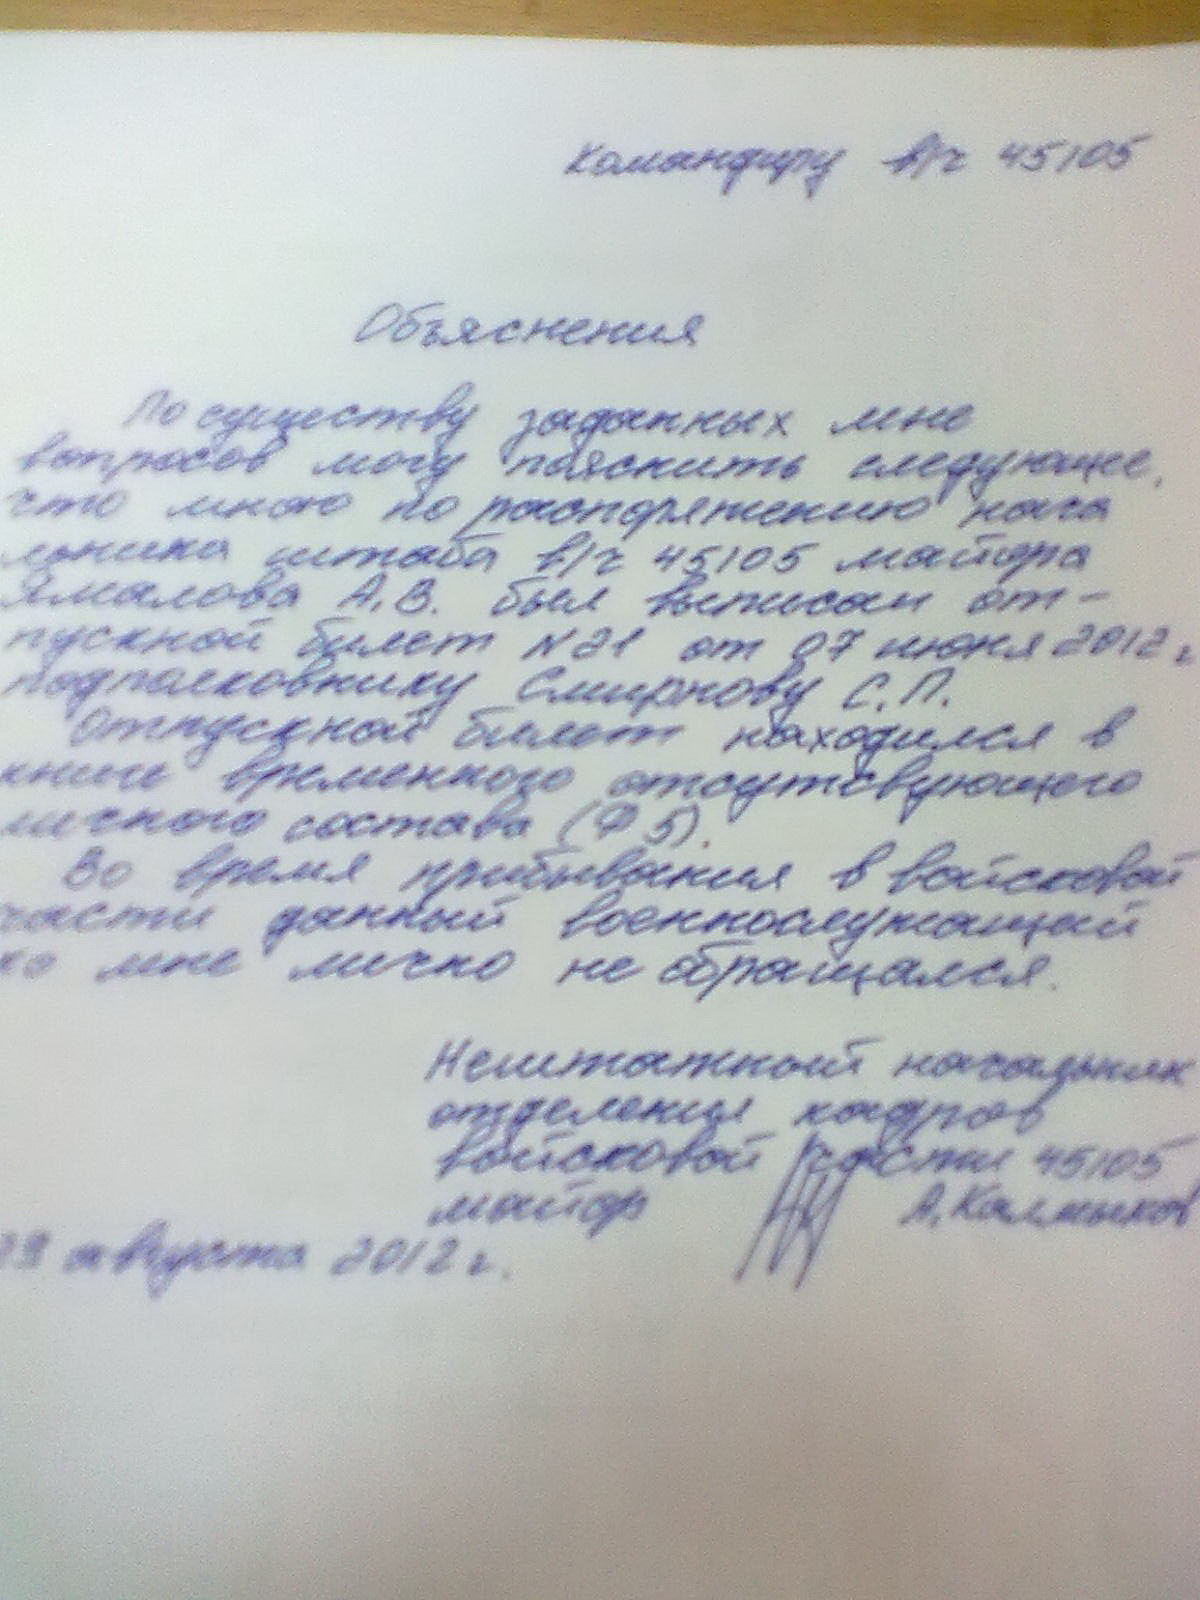 Командиру в/ч 45105
Объяснения
По существу заданных мне
вопросов могу пояснить следующее,
что мною по распоряжению нача
льника штаба в/ч 45105 майора
Ямалова А.В. был выписан от-
пускной билет №21 от 07 июня 2012 г.
подполковнику Смирнову С.П.
Отпускной билет находился в
книге временного отсутсвующего
личного состава (Ф 5).
Во время прибывания в войсковой
части данный военнослужащий
ко мне лично не обращался.
Нештатный начальник
отделения кадров
войсковой части 45105
майор А. Калмыков
29 августа 2012 г.